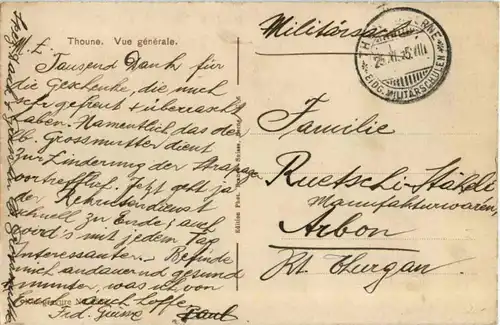 Thoune. Vue générale.
M. L.
Tausend Dank für
die Geschenke, die mich
sehr gefreut + überrascht
haben. Namentlich das der
lb. Grossmutter dient
zur Linderung der Strapazen
vortrefflich. Jetzt geht ja
der Rekrutendienst
schnell zu Ende; auf
word's mit jedem Tag
Interessanter. Befinde
mich andauernd gesund
munter, was ich von
Euch auch hoffe.
Frdl. Grüsse Paul
Militärsache
EIDG. MILITÄRSCHULEN
Familie
Ruetschi-Stähelin
Manufakturwaren
Arbon
Kt. Thurgau